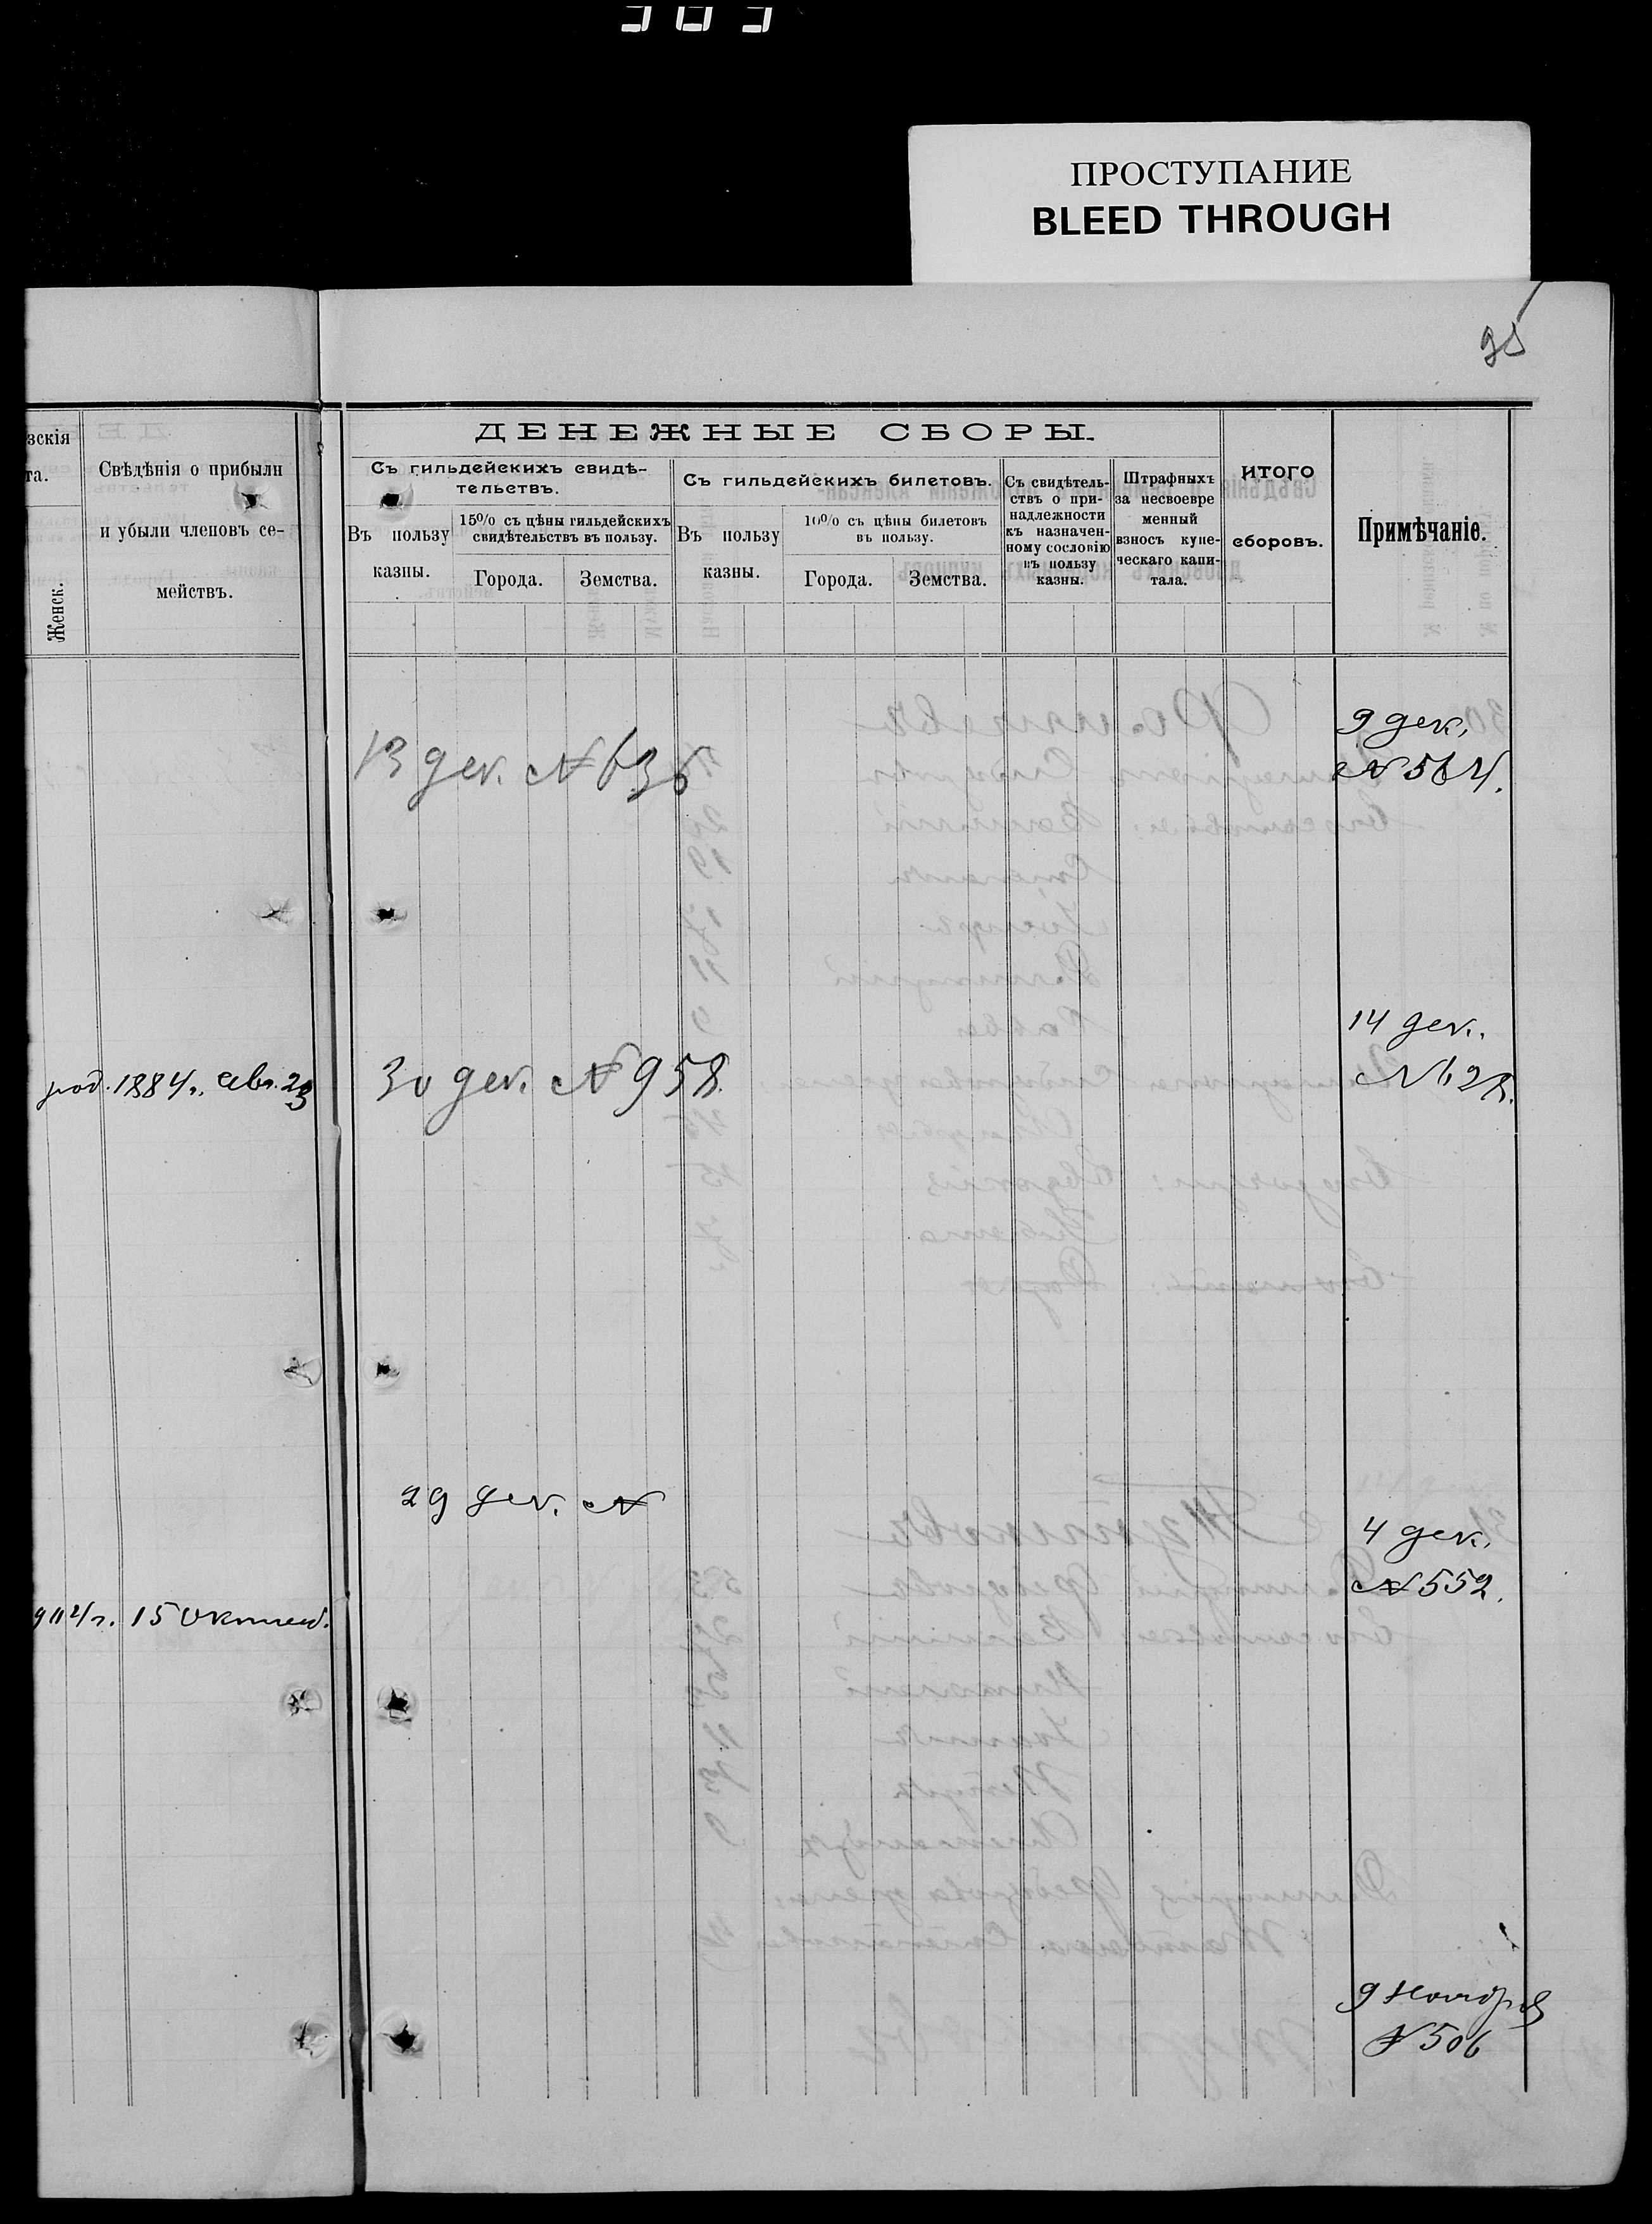 ПРОСТУПАНИЕ
BLEED THROUGH
95
зскія
та.
Женск.
Свѣдѣнія о прибыли
и убыли членовъ се-
мействъ.
ДЕНЕЖНЫЕ СБОРЫ.
Съ гильдейскихъ свидѣ-
тельствъ.
Въ пользу
казны.
15% съ цѣны гильдейскихъ
свидѣтельствъ въ пользу.
Города.
Земства.
Съ гильдейскихъ билетовъ.
Въ пользу
казны.
10% съ цѣны билетовъ
въ пользу.
Города.
Земства.
Съ свидѣтель-
ствъ о при-
надлежности
къ назначен-
ному сословію
въ пользу
казны.
Штрафныхъ
за несвоевре
менный
взносъ купе-
ческаго капи-
тала.
ИТОГО
сборовъ.
Примѣчаніе.
13 дек. № 636
9 дек.
№ 564.
род. 1884 г. Авг. 23
30 дек. № 958.
14 дек.
№ 628.
29 дек. №
4 дек.
№ 552.
15 Октяб.
9 Ноября
№ 506